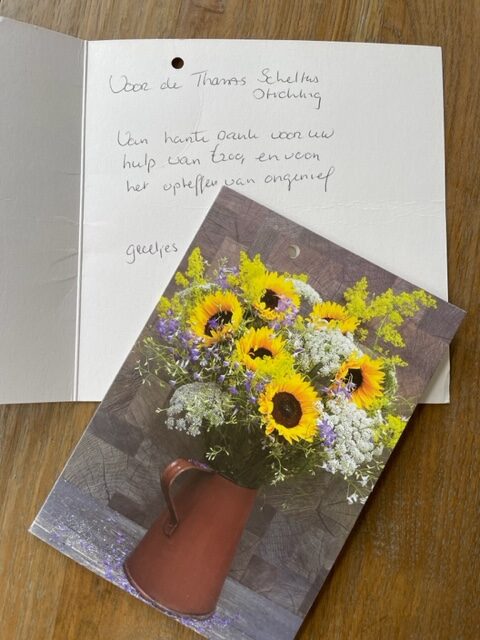 Voor de Thomas Scheltus
Stichting
Van harte Dank voor uw
hulp van €200, en voor
het opheffen van ongerief
groetjes